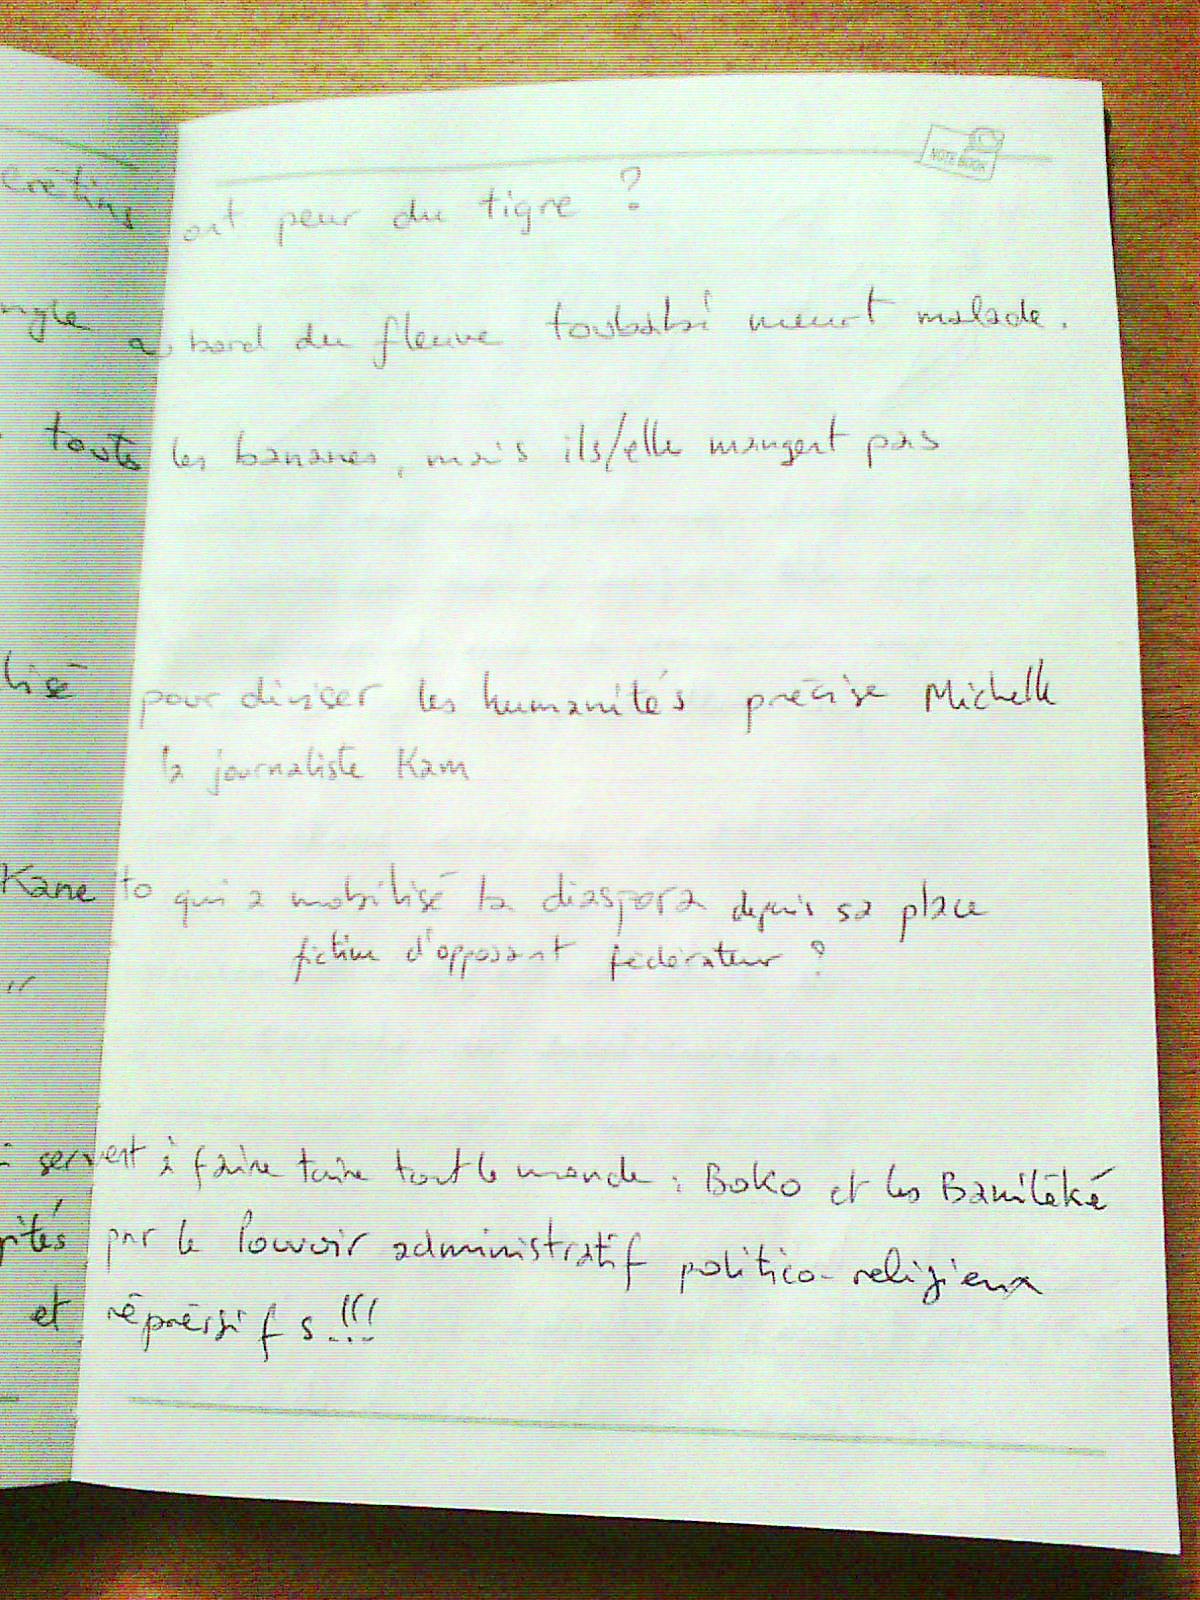 NOTE BOOK
ont peur du tigre ?
ngle au bord du fleuve toubabi meurt malade.
toutes les bananes, mais ils/elle mangent pas
lisé pour diviser les humanités précise Michelle
la journaliste Kam
Kane to qui a mobilisé la diaspora depuis sa place
fictive d'opposant fédérateur ?
servent à faire taire tout le monde : Boko et les Bamiléké
pités par le Pouvoir administratif politico-religieux
et répressifs !!!